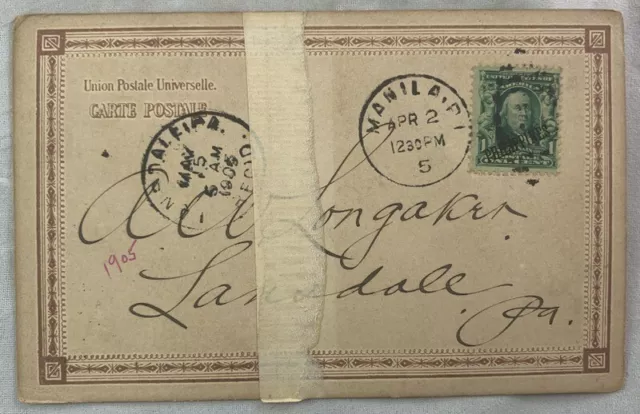 Union Postale Universelle.
CARTE POSTALE
MANILA, P.I.
APR 2
1230PM
5
MAY
15
5 AM
1905
1905
Longaker
Lansdale
Pa.